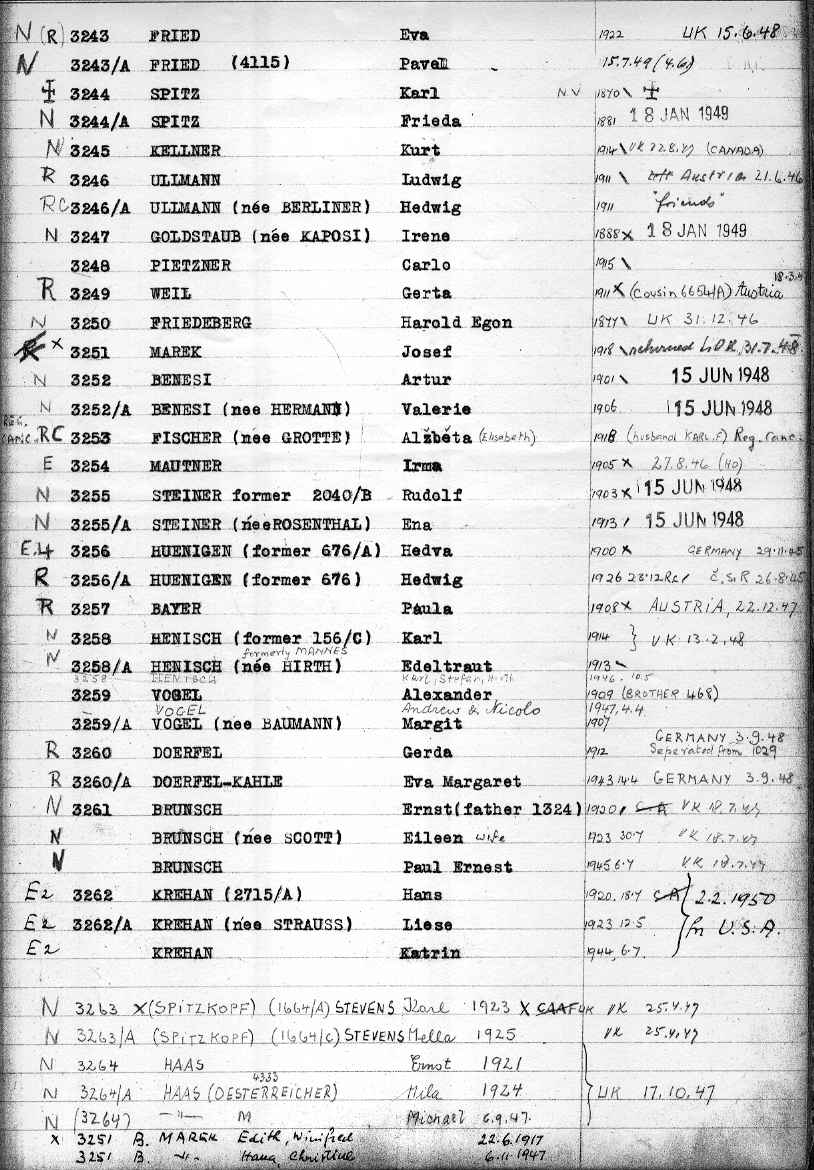 N (R) 3243 FRIED Eva 1922 UK 15.6.48
N 3243/A FRIED (4115) Pavel 15.7.49 (4.6)
3244 SPITZ Karl N.V 1870 \
N 3244/A SPITZ Frieda 1881 18 JAN 1949
N 3245 KELLNER Kurt 1914 \ VK 22.8.47 (CANADA)
R 3246 ULLMANN Ludwig 1911 \ left Austria 21.6.46
RC 3246/A ULLMANN (née BERLINER) Hedwig 1911 "friends"
N 3247 GOLDSTAUB (née KAPOSI) Irene 1888 x 18 JAN 1949
3248 PIETZNER Carlo 1915 \
R 3249 WEIL Gerta 1911 x (cousin 6654/A) Austria 18.3.
N 3250 FRIEDEBERG Harold Egon 1877 \ UK 31.12.46
R x 3251 MAREK Josef 1918 \ returned 31.7.48
N 3252 BENESI Artur 1901 \ 15 JUN 1948
N 3252/A BENESI (nee HERMANN) Valerie 1906 15 JUN 1948
REG. CANC. RC 3253 FISCHER (nee GROTTE) Alžběta (Elisabeth) 1918 (husband KARL.F) Reg. canc.
E 3254 MAUTNER Irma 1905 x 27.8.46 (HO)
N 3255 STEINER former 2040/B Rudolf 1903 x 15 JUN 1948
N 3255/A STEINER (néeROSENTHAL) Ena 1913 / 15 JUN 1948
E.4 3256 HUENIGEN (former 676/A) Hedva 1900 x GERMANY 29.11.45
R 3256/A HUENIGEN (former 676) Hedwig 1926 23.12 Č.S.R 26.8.45
R 3257 BAYER Paula 1908 x AUSTRIA, 22.12.47
N 3258 HENISCH (former 156/C) Karl 1914 } VK 13.2.48
formerly MANNES
N 3258/A HENISCH (née HIRTH) Edeltraut 1913 \
3258 HENISCH Karl, Stefan, 1946. 10.5
3259 VOGEL Alexander 1909 (BROTHER 468)
VOGEL Andrew & Nicolo 1947, 4.4
3259/A VOGEL (nee BAUMANN) Margit 1907
R 3260 DOERFEL Gerda 1912 GERMANY 3.9.48
Seperated from 1029
R 3260/A DOERFEL-KAHLE Eva Margaret 1943 14.4 GERMANY 3.9.48
N 3261 BRUNSCH Ernst(father 1324) 1920 / VK 18.7.47
N BRUNSCH (née SCOTT) Eileen wife 1923 30.7 VK 18.7.47
N BRUNSCH Paul Ernest 1945 6.7 VK 18.7.47
E2 3262 KREHAN (2715/A) Hans 1920. 18.7 2.2.1950
E2 3262/A KREHAN (nee STRAUSS) Liese 1923 12.5 for U.S.A.
E2 KREHAN Katrin 1944, 6.7.
N 3263 x (SPITZKOPF) (1664/A) STEVENS Karl 1923 x CAAF UK VK 25.4.47
N 3263/A (SPITZKOPF) (1664/C) STEVENS Mella 1925 VK 25.4.47
N 3264 HAAS Ernst 1921
4333
N 3264/A HAAS (OESTERREICHER) Mila 1924 UK 17.10.47
N (3264) -"- M Michael 6.9.47.
x 3251 B. MAREK Edith, Winifred 22.6.1917
3251 B. -"- Hana, Christine 6.11.1947